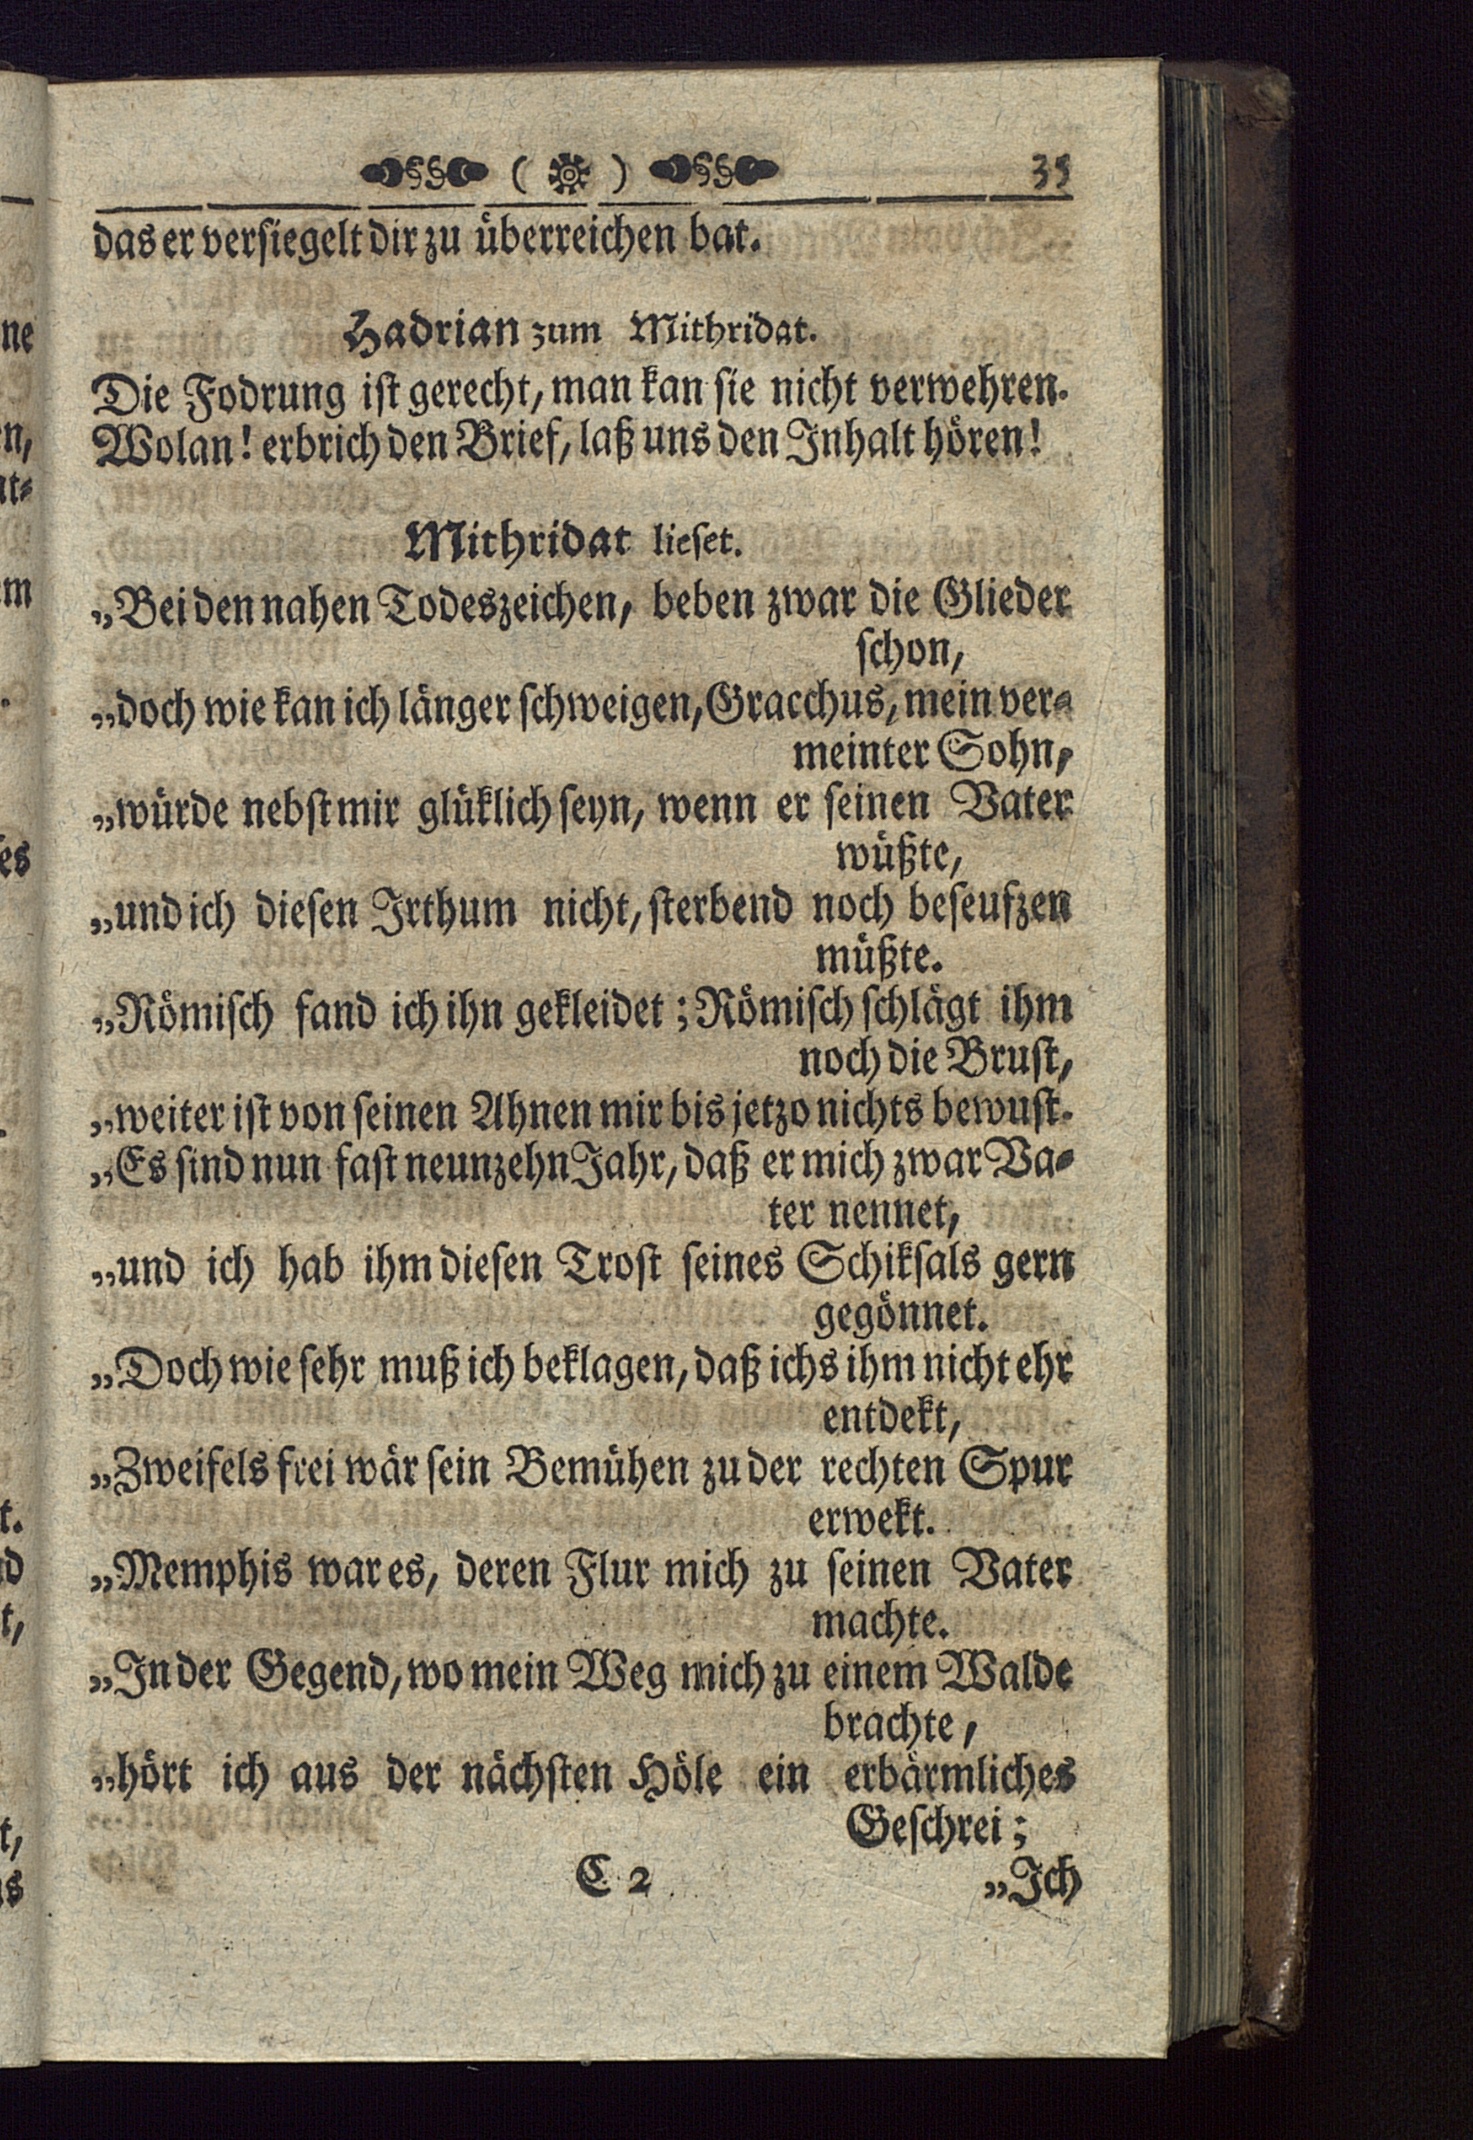 §§ ( ) §§ 35
das er versiegelt dir zu überreichen bat.
Hadrian zum Mithridat.
Die Fodrung ist gerecht, man kan sie nicht verwehren.
Wolan! erbrich den Brief, laß uns den Inhalt hören!
Mithridat lieset.
„Bei den nahen Todeszeichen, beben zwar die Glieder
schon,
„doch wie kan ich länger schweigen, Gracchus, mein ver-
meinter Sohn,
„würde nebst mir glüklich seyn, wenn er seinen Vater
wüßte,
„und ich diesen Irthum nicht, sterbend noch beseufzen
müßte.
„Römisch fand ich ihn gekleidet; Römisch schlägt ihm
noch die Brust,
„weiter ist von seinen Ahnen mir bis jetzo nichts bewust.
„Es sind nun fast neunzehn Jahr, daß er mich zwar Va-
ter nennet,
„und ich hab ihm diesen Trost seines Schiksals gern
gegönnet.
„Doch wie sehr muß ich beklagen, daß ichs ihm nicht ehr
entdekt,
„Zweifels frei wär sein Bemühen zu der rechten Spur
erwekt.
„Memphis war es, deren Flur mich zu seinen Vater
machte.
„In der Gegend, wo mein Weg mich zu einem Walde
brachte,
„hört ich aus der nächsten Höle ein erbärmliches
Geschrei;
C 2 „Ich